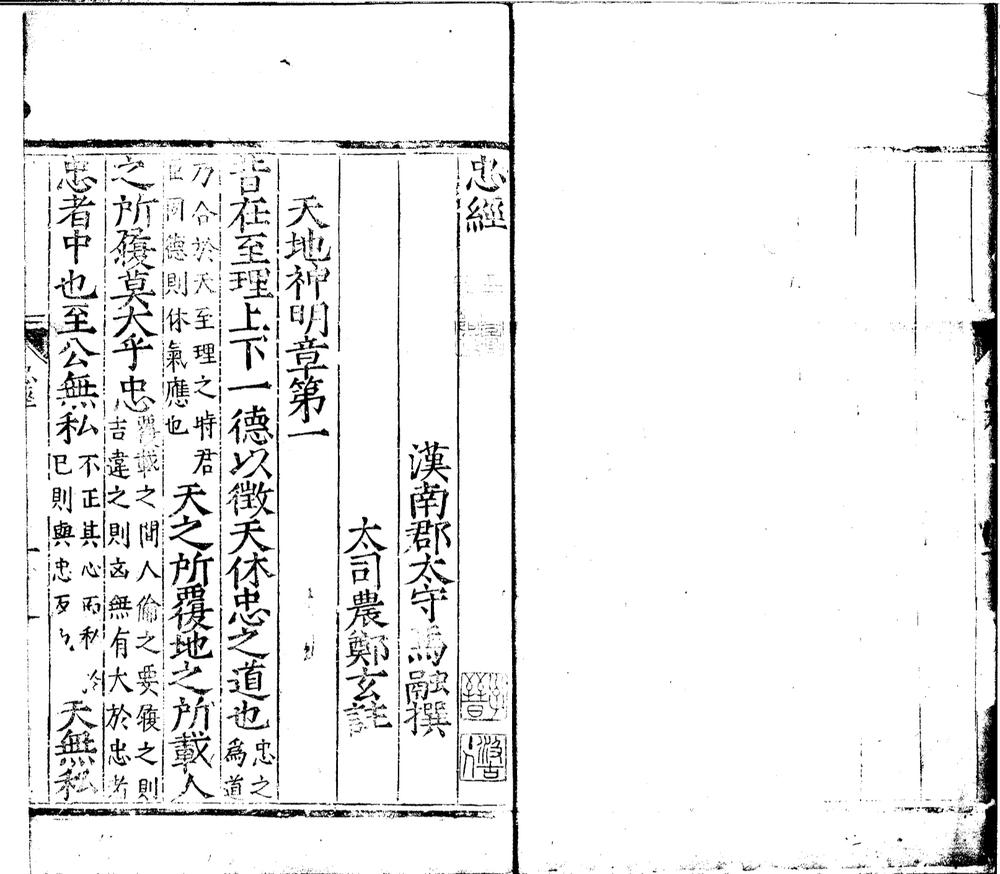 忠經
漢南郡太守馬融撰
太司農鄭玄註
天地神明章第一
昔在至理上下一德以徵天休忠之道也忠之爲道
乃合於天至理之時君臣同德則休氣應也天之所覆地之所載人
之所履莫大乎忠覆載之間人倫之要履之則吉違之則凶無有大於忠者
忠者中也至公無私不正其心而私於已則與忠反天無私